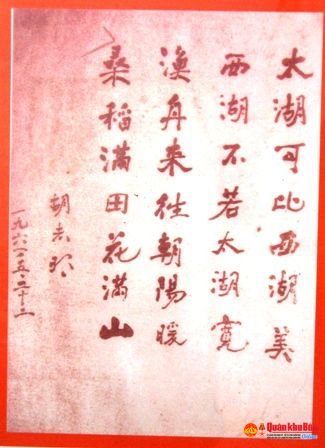 太湖可比西湖美
西湖不若太湖寬
漁舟来往朝陽暖
桑稻滿田花滿山
胡志明
一九六六・五・二十二
Quân khu Bốn